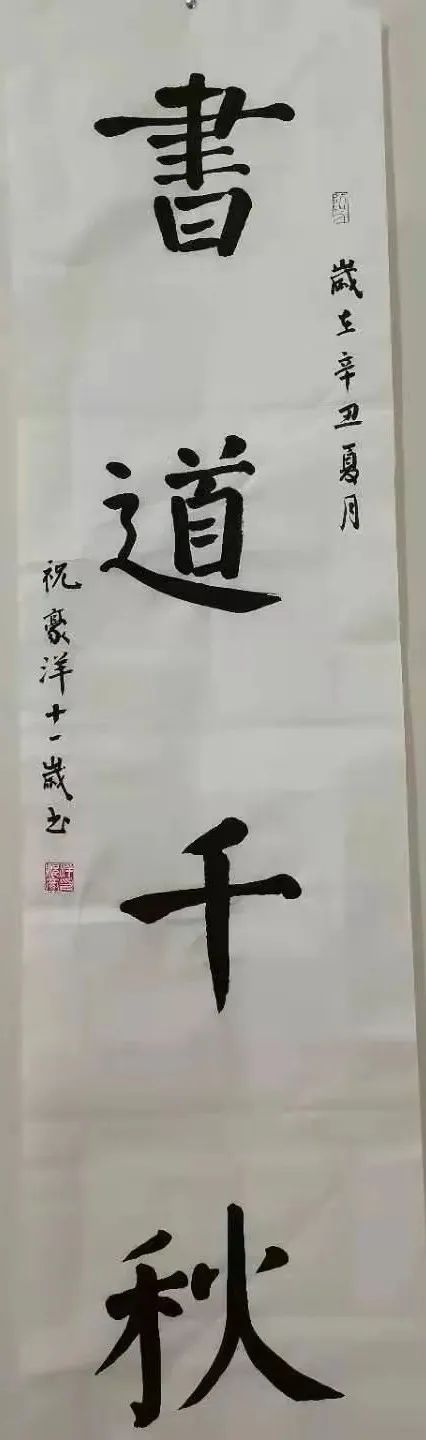 歲在辛丑夏月
書道千秋
祝豪洋十一歲书